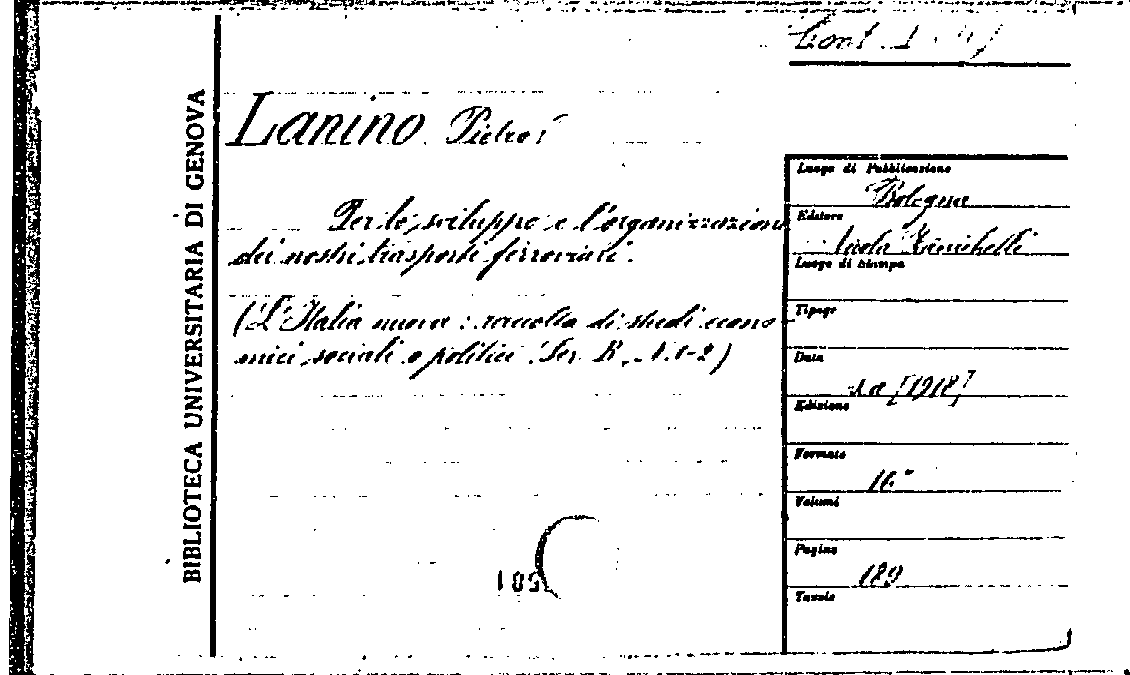 BIBLIOTECA UNIVERSITARIA DI GENOVA
Cont. 1.
Lanino Pietro
Per lo sviluppo e l'organizzazione
dei nostri trasporti ferroviari.
(L'Italia nuova: raccolta di studi econo-
mici sociali e politici. Ser. B, N. 1-2)
Luogo di Pubblicazione
Bologna
Editore
Nicola Zanichelli
Luogo di Stampa
Tipogr
Data
s.a [1918]
Edizione
Formato
16°
Volumi
Pagine
189
Tavole